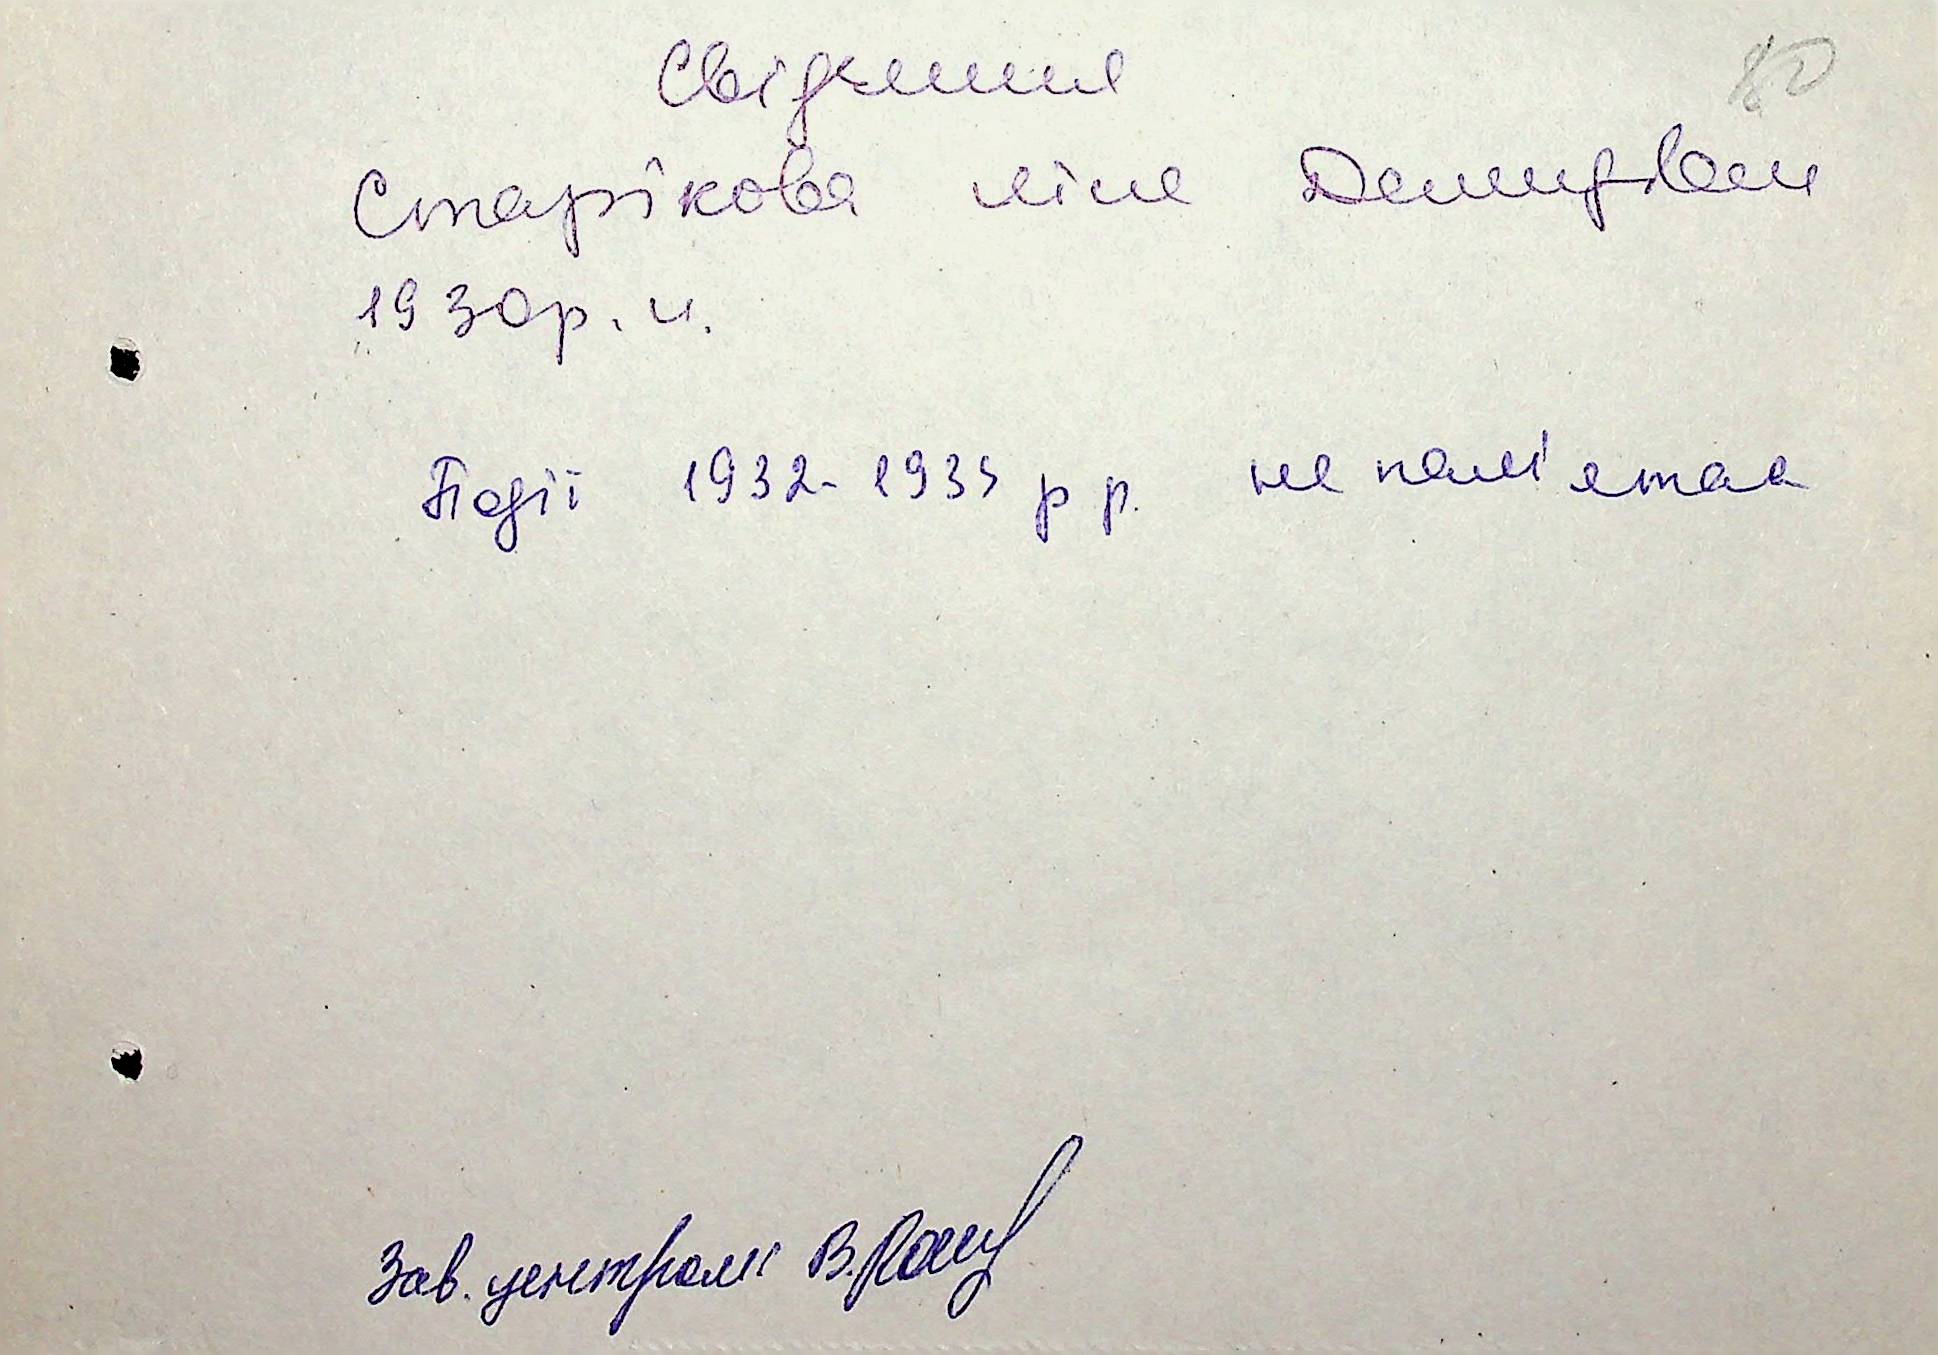 Свідчення
80
Старікова Ліна
1930 р. н.
Події 1932-1933 рр. не пам'ятаа
Зав. центром В.